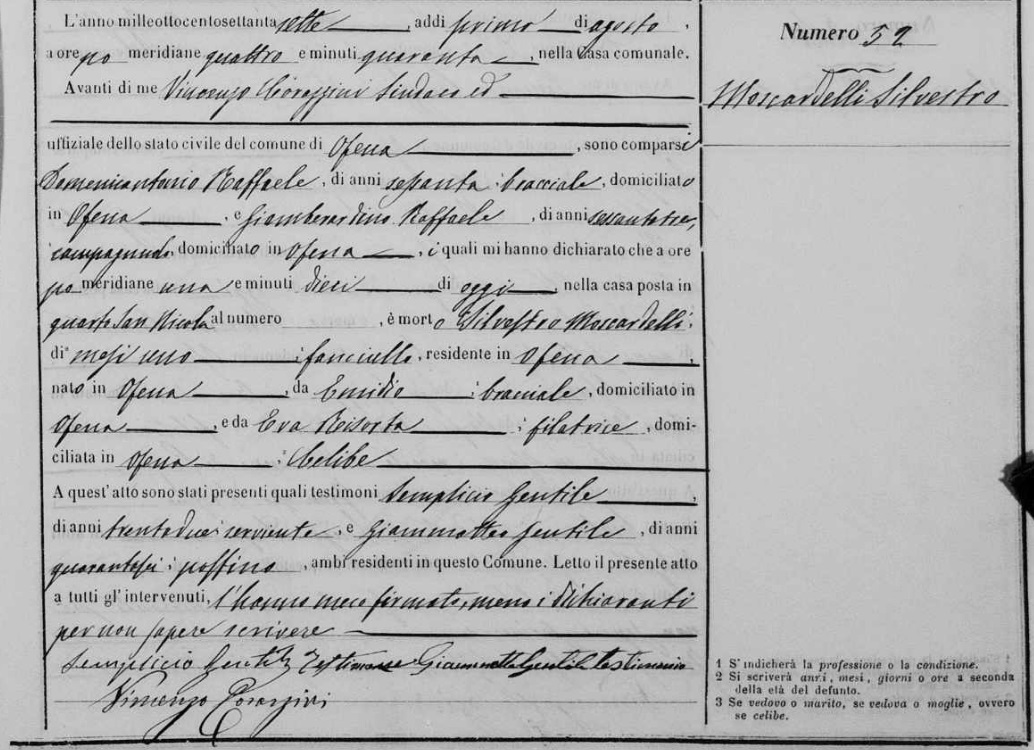 L'anno milleottocentosettanta sette, addi primo di agosto,
a ore po meridiane quattro e minuti quaranta, nella Casa comunale.
Avanti di me Vincenzo Corazzini Sindaco ed
uffiziale dello stato civile del comune di Ofena, sono comparsi
Domenicantonio Raffaele, di anni sessanta; bracciale, domiciliato
in Ofena, e Giamberardino Raffaele, di anni sessantatre,
campagnuolo, domiciliato in Ofena, i quali mi hanno dichiarato che a ore
po meridiane una e minuti dieci di oggi, nella casa posta in
quarto San Nicola al numero , è morto Silvestro Moscardelli;
di mesi uno; fanciullo, residente in Ofena,
nato in Ofena, da Emidio; bracciale, domiciliato in
Ofena, e da Eva Risorta; filatrice, domi-
ciliata in Ofena; Celibe
A quest'atto sono stati presenti quali testimoni Semplicio Gentile,
di anni trentadue; serviente, e Giammatteo Gentile, di anni
quarantasei; postino, ambi residenti in questo Comune. Letto il presente atto
a tutti gl'intervenuti, l'hanno meco firmato, meno i dichiaranti
per non sapere scrivere
Semplicio Gentile Testimone Giammatteo Gentile testimonio
Vincenzo Corazzini
Numero 52
Moscardelli Silvestro
1 S'indicherà la professione o la condizione.
2 Si scriverà anni, mesi, giorni o ore a seconda
della età del defunto.
3 Se vedovo o marito, se vedova o moglie, ovvero
se celibe.